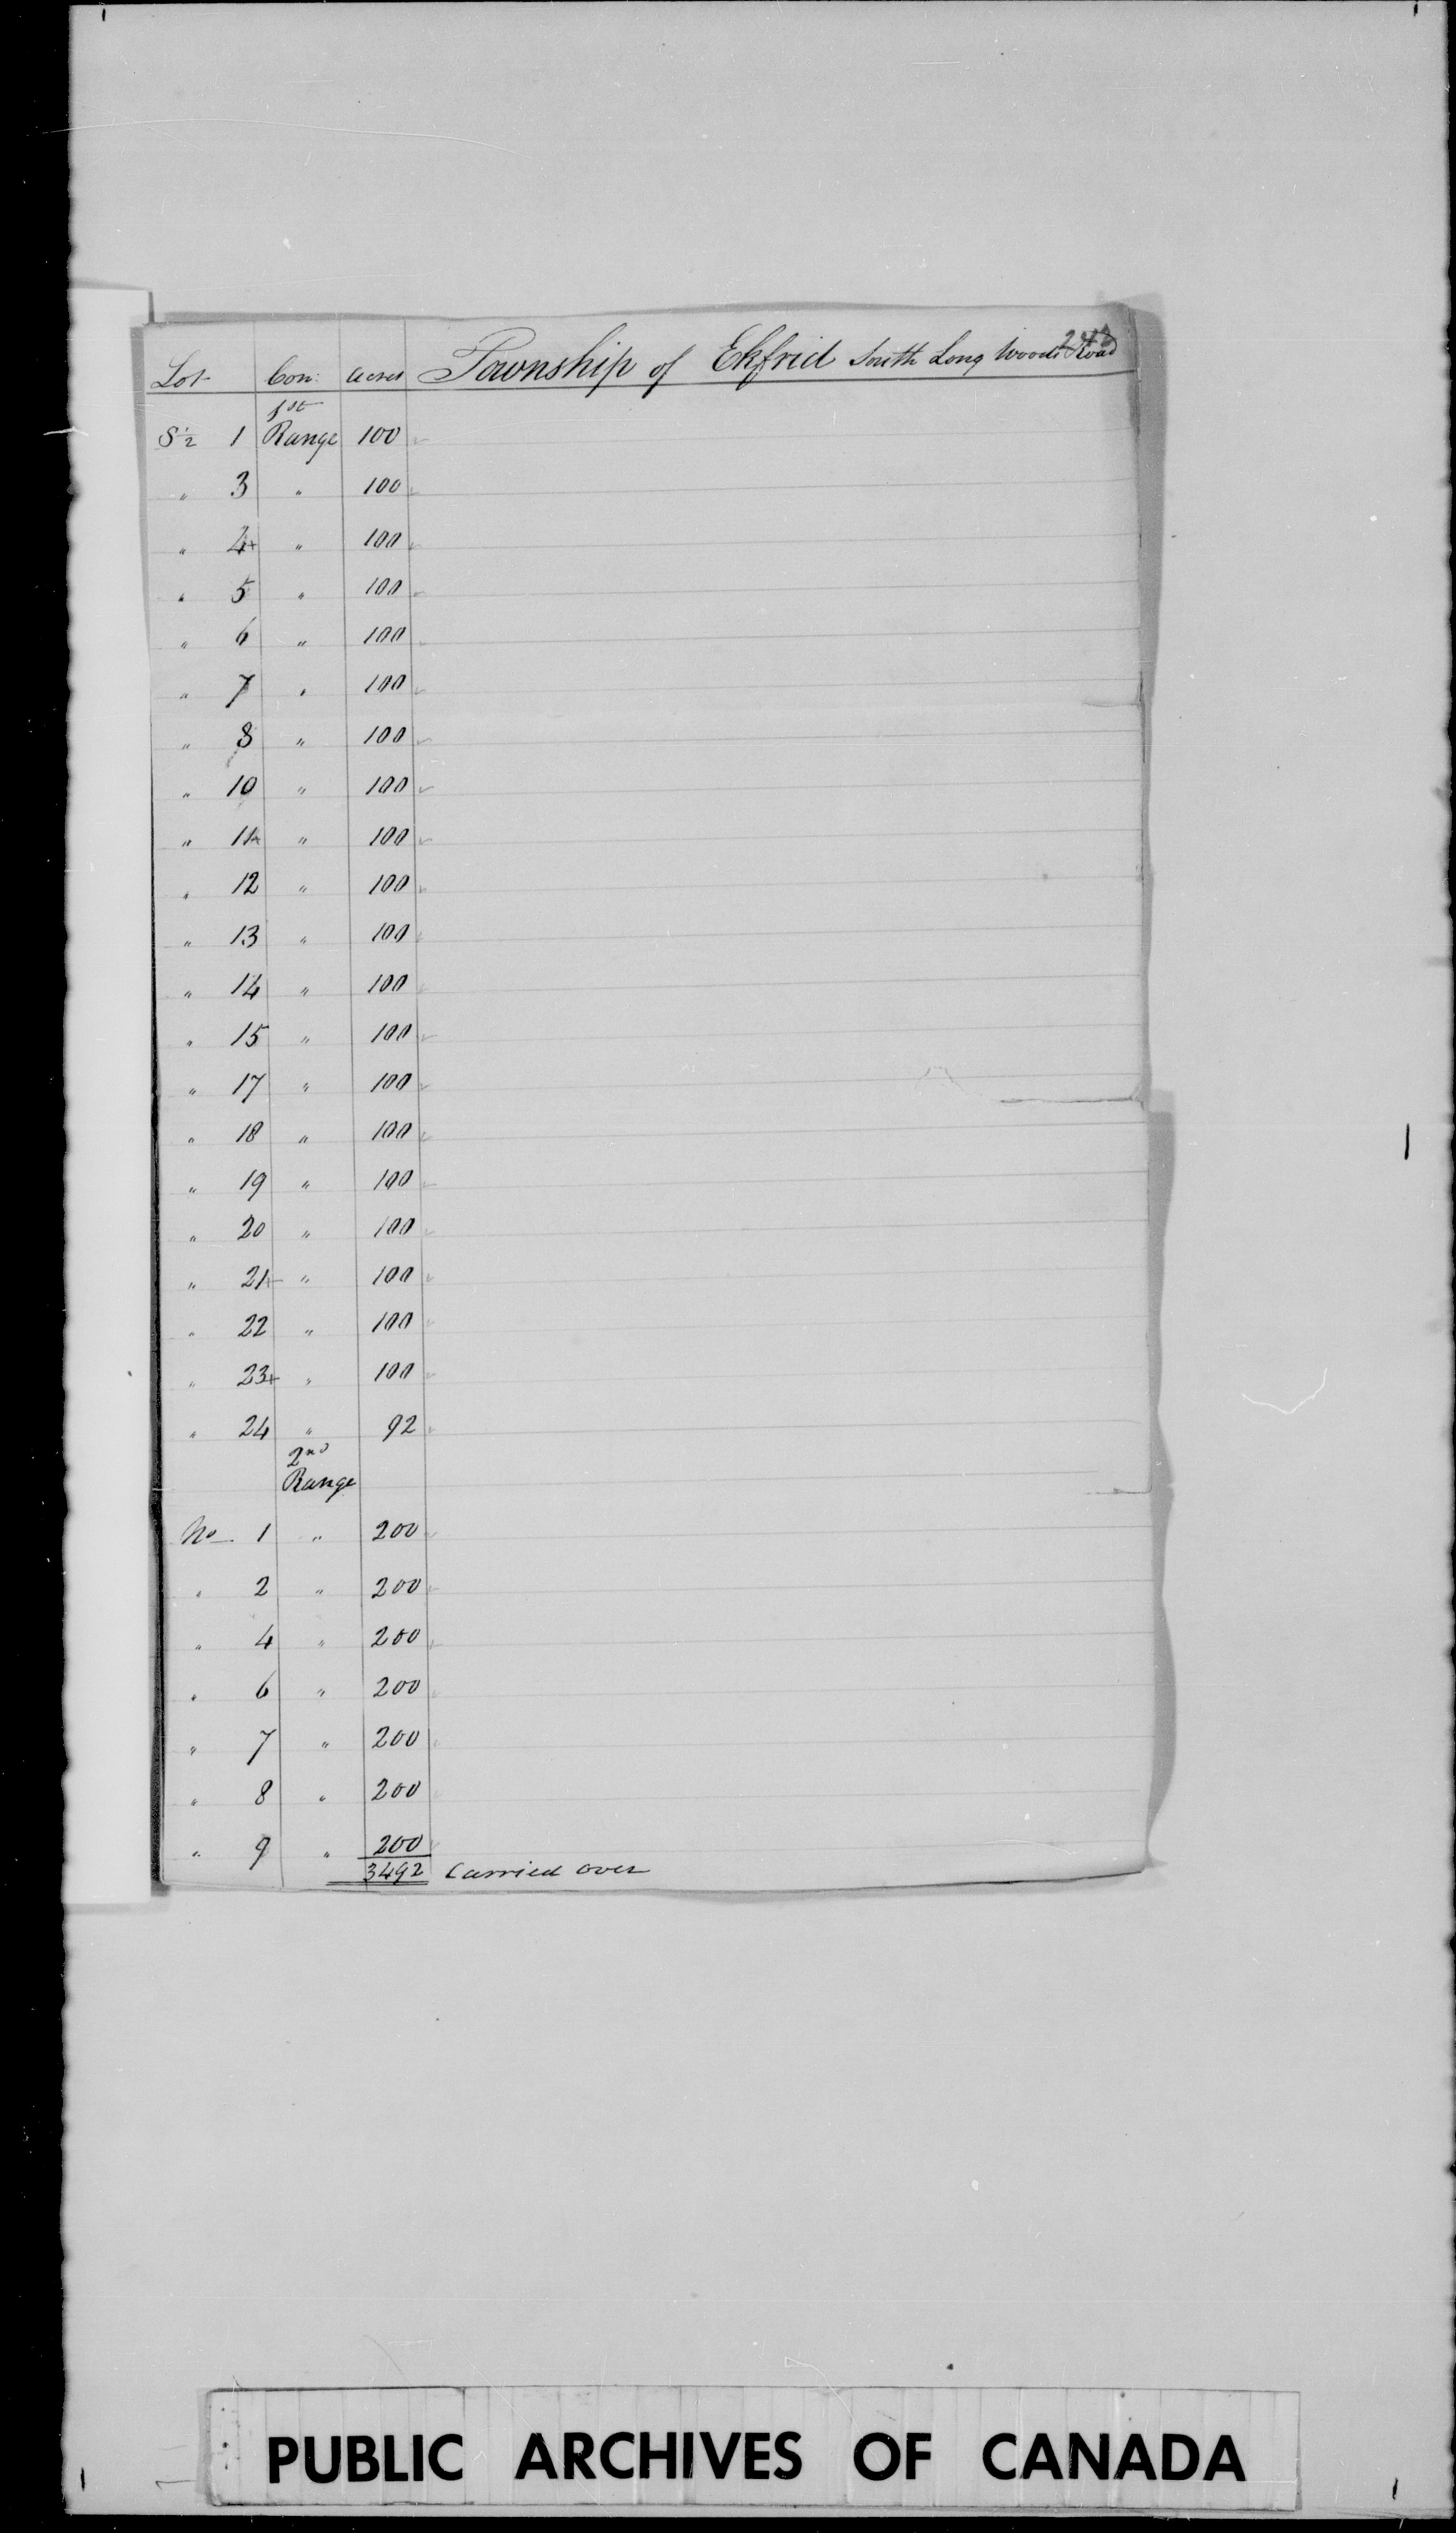 Lot Con: acres Township of Ekfrid South Long Woods Road
1st
S ½ 1 Range 100
" 3 " 100
" 4+ " 100
" 5 " 100
" 6 " 100
" 7 " 100
" 8 " 100
" 10 " 100
" 11+ " 100
" 12 " 100
" 13 " 100
" 14 " 100
" 15 " 100
" 17 " 100
" 18 " 100
" 19 " 100
" 20 " 100
" 21+ " 100
" 22 " 100
" 23+ " 100
" 24 " 92
2nd
Range
No 1 " 200
" 2 " 200
" 4 " 200
" 6 " 200
" 7 " 200
" 8 " 200
" 9 " 200
3492 Carried over
PUBLIC ARCHIVES OF CANADA